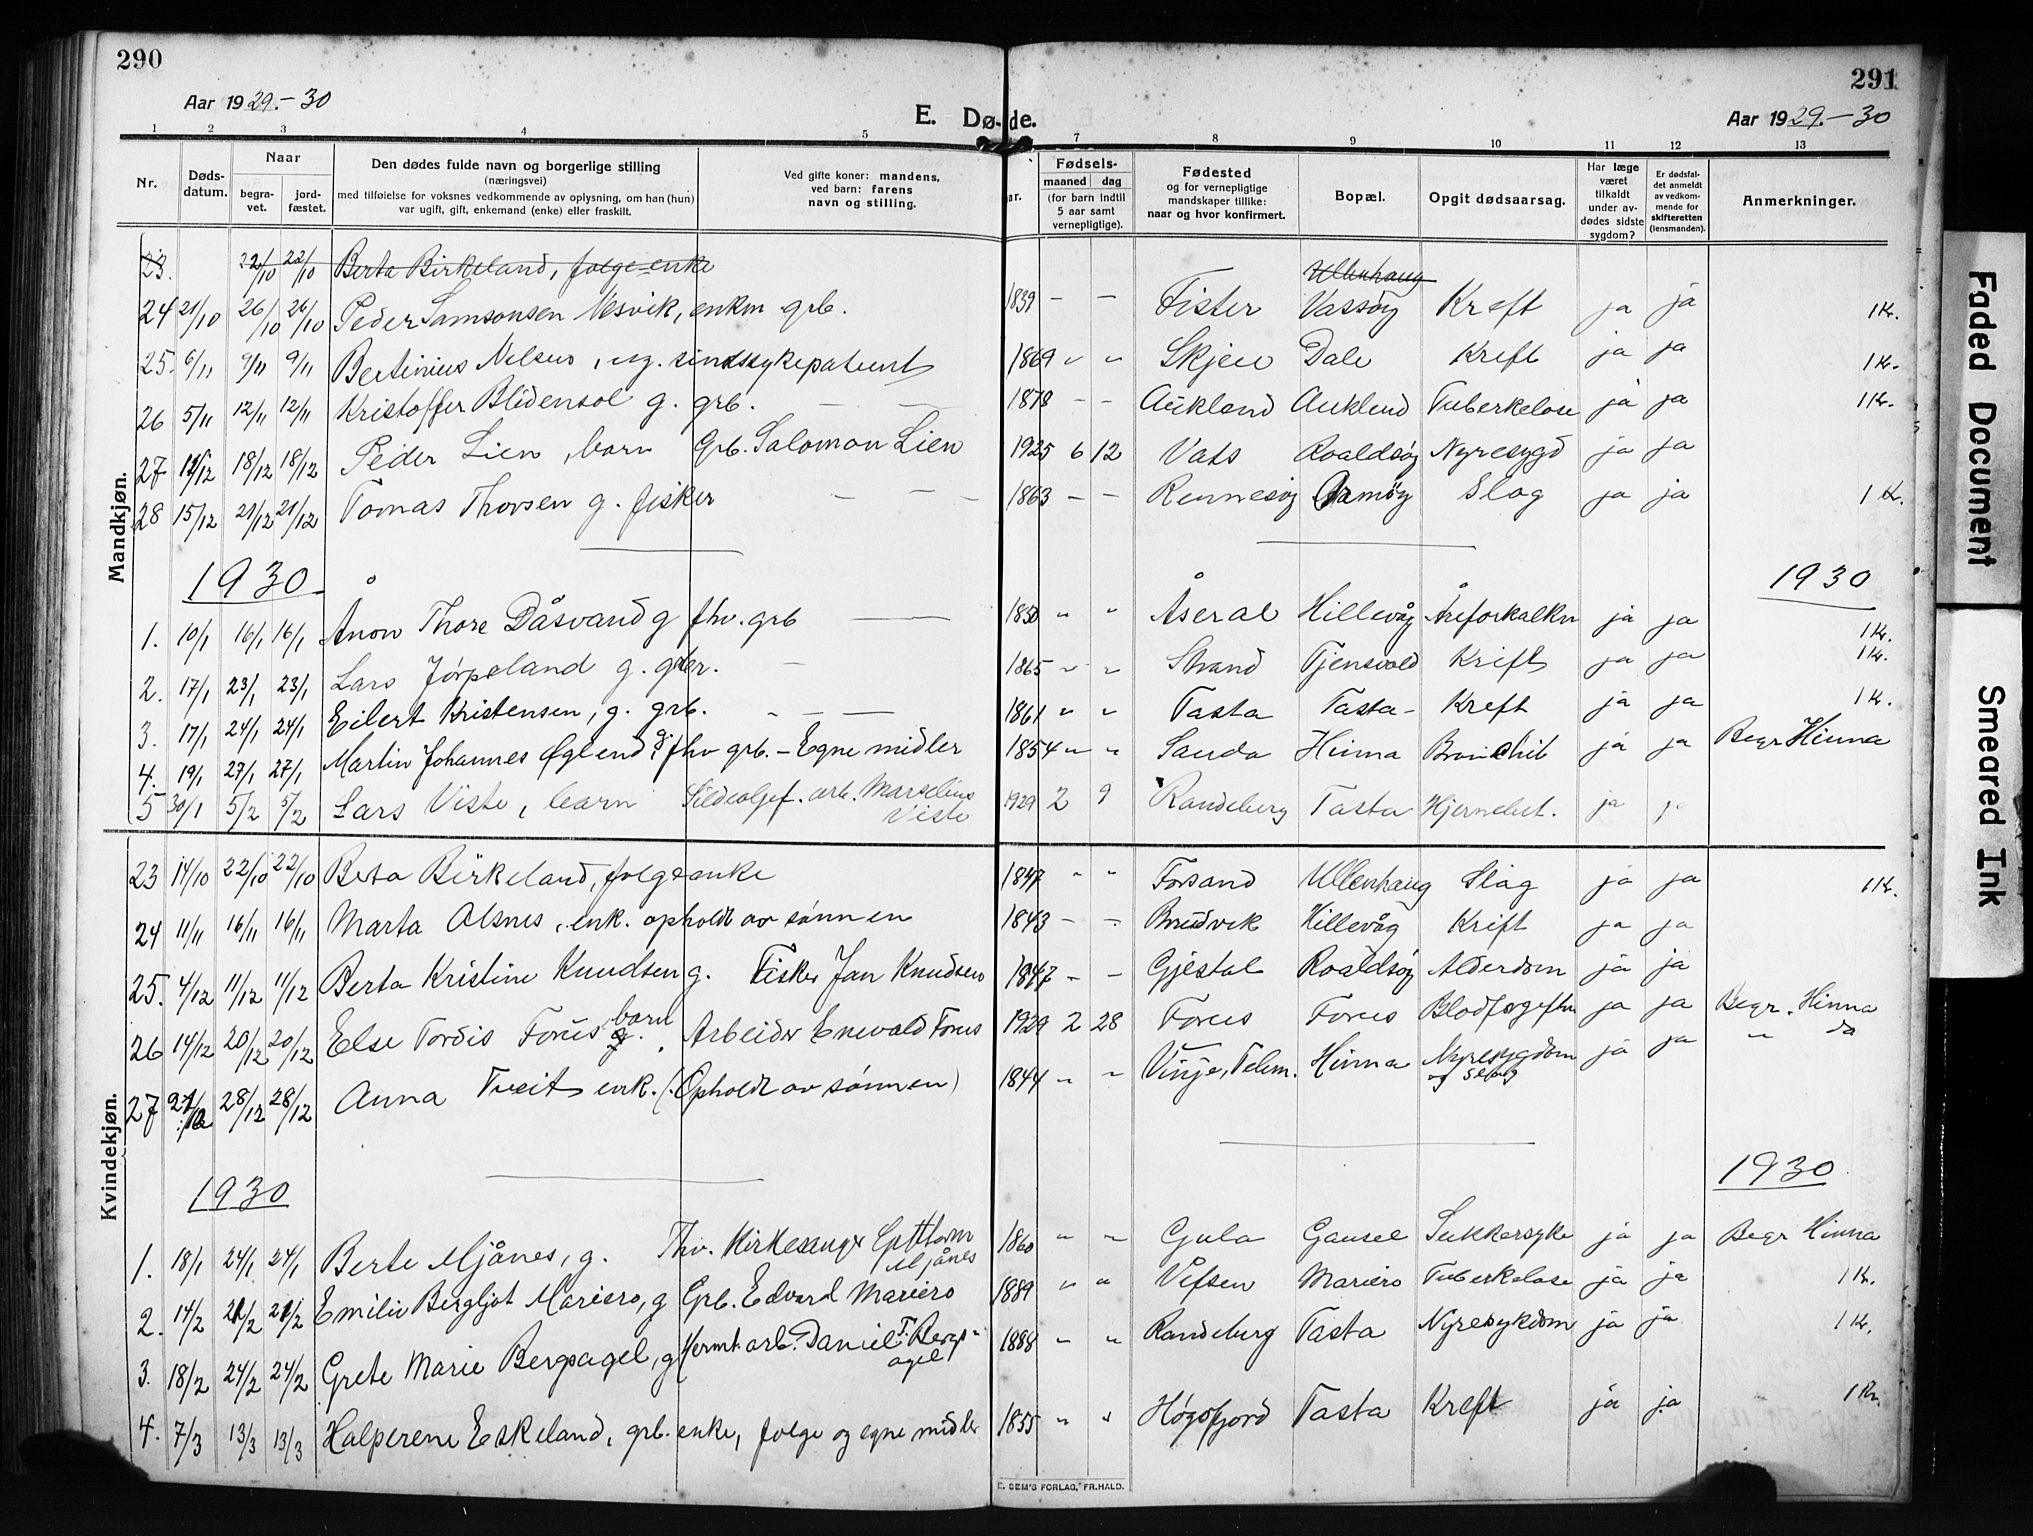 290
291
Aar 1929.-30
E. Døde.
Aar 1929.-30
1 2 3 4 5 7 8 9 10 11 12 13
Nr.
Dødsdatum.
Naar
begravet.
jordfæstet.
Den dødes fulde navn og borgerlige stilling
(næringsvei)
med tilføielse for voksnes vedkommende av oplysning, om han (hun)
var ugift, gift, enkemand (enke) eller fraskilt.
Ved gifte koner: mandens,
ved barn: farens
navn og stilling.
ar.
Fødsels-
maaned dag
(for barn indtil
5 aar samt
vernepligtige).
Fødested
og for vernepligtige
mandskaper tillike:
naar og hvor konfirmert.
Bopæl.
Opgit dødsaarsag.
Har læge
været
tilkaldt
under av-
dødes sidste
sygdom?
Er dødsfal-
det anmeldt
av vedkom-
mende for
skifteretten
(lensmanden).
Anmerkninger.
Mandkjøn.
23. 22/10 22/10 Berta Birkeland, følge enke Ullenhaug
24 21/10 26/10 26/10 Peder Samsonsen Vesvik, enkm grb. 1839 - - Fister Vassøy Kreft ja ja 1 Kr.
25. 6/11 9/11 9/11 Bertinius Nelsen, ug. sindssykepatient 1869 " " Skjeie Dale Kreft ja ja 1 Kr.
26 5/11 12/11 12/11 Kristoffer Blidensol g. grb. - - 1878 - - Aukland Auklend Tuberkelose ja ja 1 Kr.
27 12/12 18/12 18/12 Peder Lien, barn Grb. Salomon Lien 1925 6 12 Vats Roaldsøy Nyresygd ja ja
28 15/12 21/12 21/12 Tomas Thorsen g. fisker - - - 1863 - - Rennesøy Ormøy Slag ja ja 1 Kr.
1930 1930
1. 10/1 16/1 16/1 Ånon Thore Dåsvand g fhv. grb 1850 " " Åseral Hillevåg Åreforkalkn ja ja 1 Kr.
2. 17/1 23/1 23/1 Lars Jørpeland g. grb. - 1865 " " Strand Tjensvold Kreft ja ja 1 Kr.
3. 17/1 24/1 24/1 Eilert Kristensen, g. grb. - - 1861 " " Tasta Tasta- Kreft ja ja 1 Kr.
4. 19/1 27/1 27/1 Martin Johannes Øglend g. fhv grb. - Egne midler 1854 " " Sauda Hinna Bronchit ja ja Begr Hinna
5 30/1 5/2 5/2 Lars Viste, barn Sildeoljef. arb. Marselius
Viste 1929 2 9 Randeberg Tasta Hjernebet. ja ja
Kvindekjøn.
23 14/10 22/10 22/10 Berta Birkeland, følgeenke 1847 " " Forsand Ullenhaug Slag ja ja 1 Kr.
24 11/11 16/11 16/11 Marta Alsnes, enk. opholdt av sønnen 1843 - - Bruvik Hillevåg Kreft ja ja
25. 4/12 11/12 11/12 Berta Kristine Knudsen g. Fisker Jan Knudsen 1847 - - Gjestal Roaldsøy Alderdom ja ja
26 14/12 20/12 20/12 Else Tordis Forus barn Arbeider Enevald Forus 1929 2 28 Forus Forus Blodforgiftn ja ja Begr. Hinna
27 21/12 28/12 28/12 Anna Tveit enk. (Opholdt av sønnen) 1844 " " Vinje, Telem. Hinna Nyresygdom
og slag ja ja " do
1930 1930
1. 18/1 24/1 24/1 Berte Mjånes, g. Fhv. Kirkesanger Guttorm
Mjånes 1860 " " Gula Gausel Sukkersyke ja ja Begr Hinna
2. 14/2 21/2 21/2 Emilie Bergljot Mariero, g Grb. Edvard Mariero 1889 " " Vefsen Mariero Tuberkelose ja ja 1 Kr.
3. 18/2 24/2 24/2 Grete Marie Bergsagel, g Hermt. arb. Daniel T. Bergs-
agel 1888 " " Randeberg Tasta Nyresykdom ja ja 1 Kr.
4. 7/3 13/3 13/3 Halperene Eskeland, grb. enke, følge og egne midler 1855 " " Høgsfjord Tasta Kreft ja ja 1 Kr.
E. SEM'S FORLAG, FR.HALD.
Faded Document
Smeared Ink